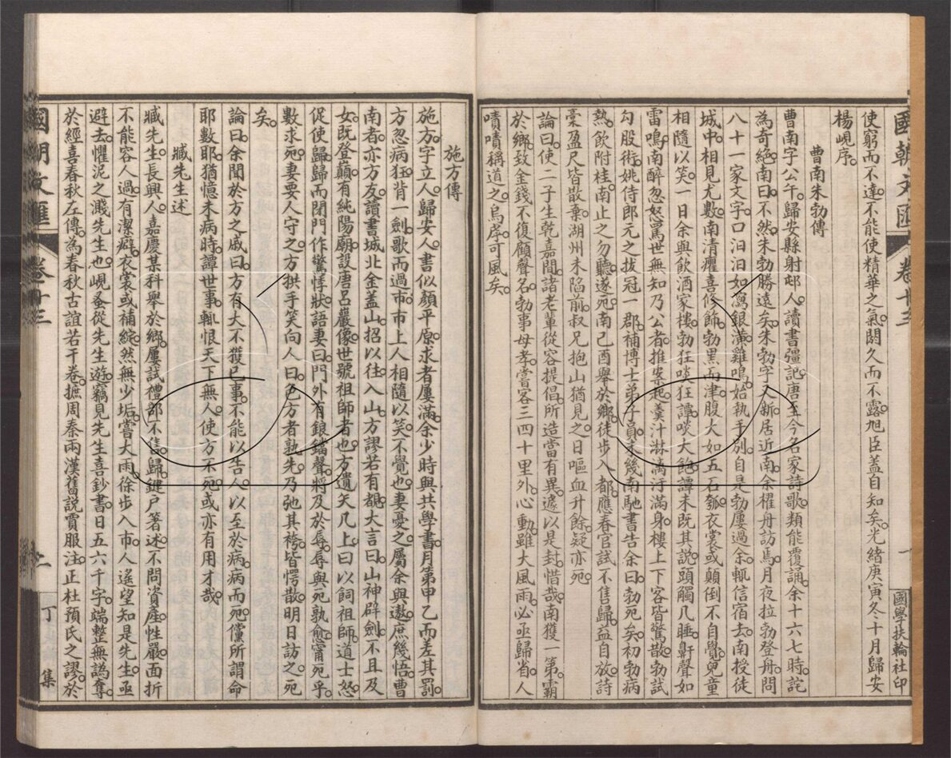 國朝文匯 卷十三 國學扶輪社印
使窮而不達不能使精華之氣閟久而不露旭臣蓋自知矣光緒庚寅冬十月歸安
楊峴序
曹南朱勃傳
曹南字公午歸安縣射邨人讀書彊記唐至今名家詩歌類能覆誦余十六七時詫
為奇絕南曰不然朱勃勝遠矣朱勃字大新居近南余櫂舟訪焉月夜拉勃登舟問
八十一家文字口汨汨如瀉銀潢雞鳴始執手別自是勃屢過余輒信宿去南授徒
城中相見尤數南清癯喜修飾勃黑而津腹大如五石瓠衣裳或顛倒不自覺兒童
相隨以笑一日余與飲酒家樓勃狂啖狂譚啖大飽譚未既其說頭觸几睡鼾聲如
雷鳴南醉忽怒罵世無知乃公者推案起羹汁淋漓汙滿身樓上下客皆驚散勃試
勾股術姚侍郎元之拔冠一郡補博士弟子員未幾南馳書告余曰勃死矣初勃病
熱飲附桂南止之勿聽遂死南己酉舉於鄉徒步入都應春官試不售歸益自放詩
豪盈尺皆散棄湖州未陷前叔兄抱山猶見之日嘔血升餘疑亦死
論曰使二子生乾嘉間諸老輩從容提倡所造當有異遽以是封惜哉南獲一第霸
於鄉致金錢不復顧聲名勃事母孝嘗客三四十里外心動雖大風雨必亟歸省人
嘖嘖稱道之烏虖可風矣
施方傳
施方字立人歸安人書似顏平原求者屢滿余少時與共學書月第甲乙而差其罰
方忽病狂背一劍歌而過市市上人相隨以笑不覺也妻憂之屬余與遨庶幾悟曹
南者亦方友讀書城北金蓋山招以往入山方謬若有覩大言曰山神辟劍不且及
女既登巔有純陽廟設唐呂巖像世號祖師者也方遺矢几上曰以飼祖師道士怒
促使歸歸而閉門作驚悸狀語妻曰門外有銀鐺聲將及於辱辱與死孰愈甯死乎
數求死妻要人守之方拱手笑向人曰色方者孰先乃弛其袴皆愕散明日訪之死
矣
論曰余聞於方之戚曰方有大不獲已事不能以告人以至於病病而死儻所謂命
耶數耶猶憶未病時譚世事輒恨天下無人使方不死或亦有用才哉
臧先生述
臧先生長興人嘉慶某科舉於鄉屢試禮部不售歸鍵戶箸述不問資產性嚴面折
不能容人過有潔癖衣裳或補綻然無少垢嘗大雨徐步入市人遙望知是先生亟
避去懼泥之濺先生也峴蚤從先生遊竊見先生喜鈔書日五六千字端整無譌奪
於經喜春秋左傳為春秋古誼若干卷摭周秦兩漢舊說賈服注正杜預氏之謬於
國朝文匯 卷十三 二 丁集